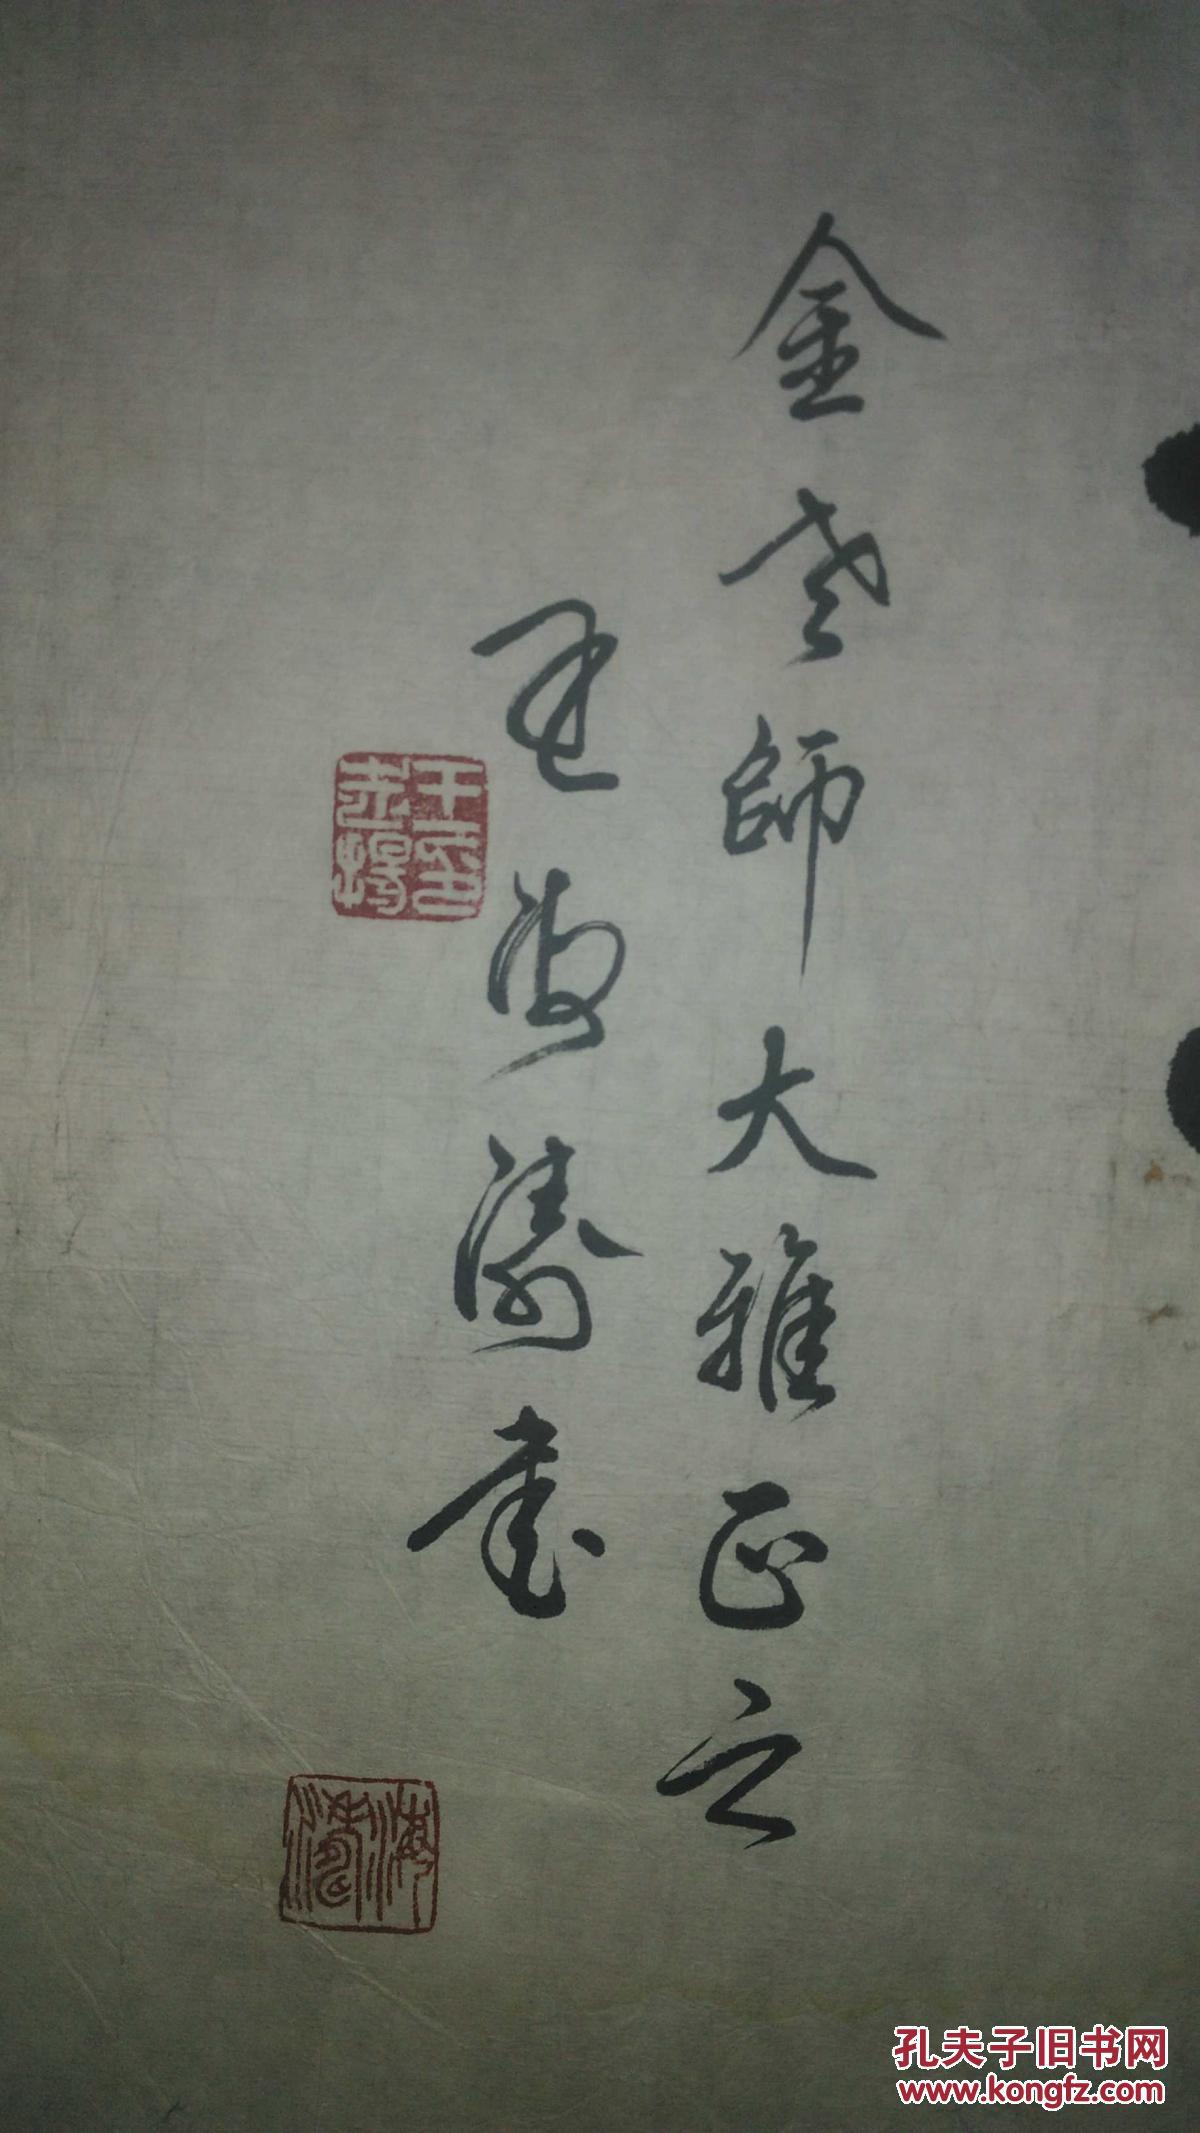 金老師大雅正之
王海濤書
海濤
孔夫子旧书网
www.kongfz.com